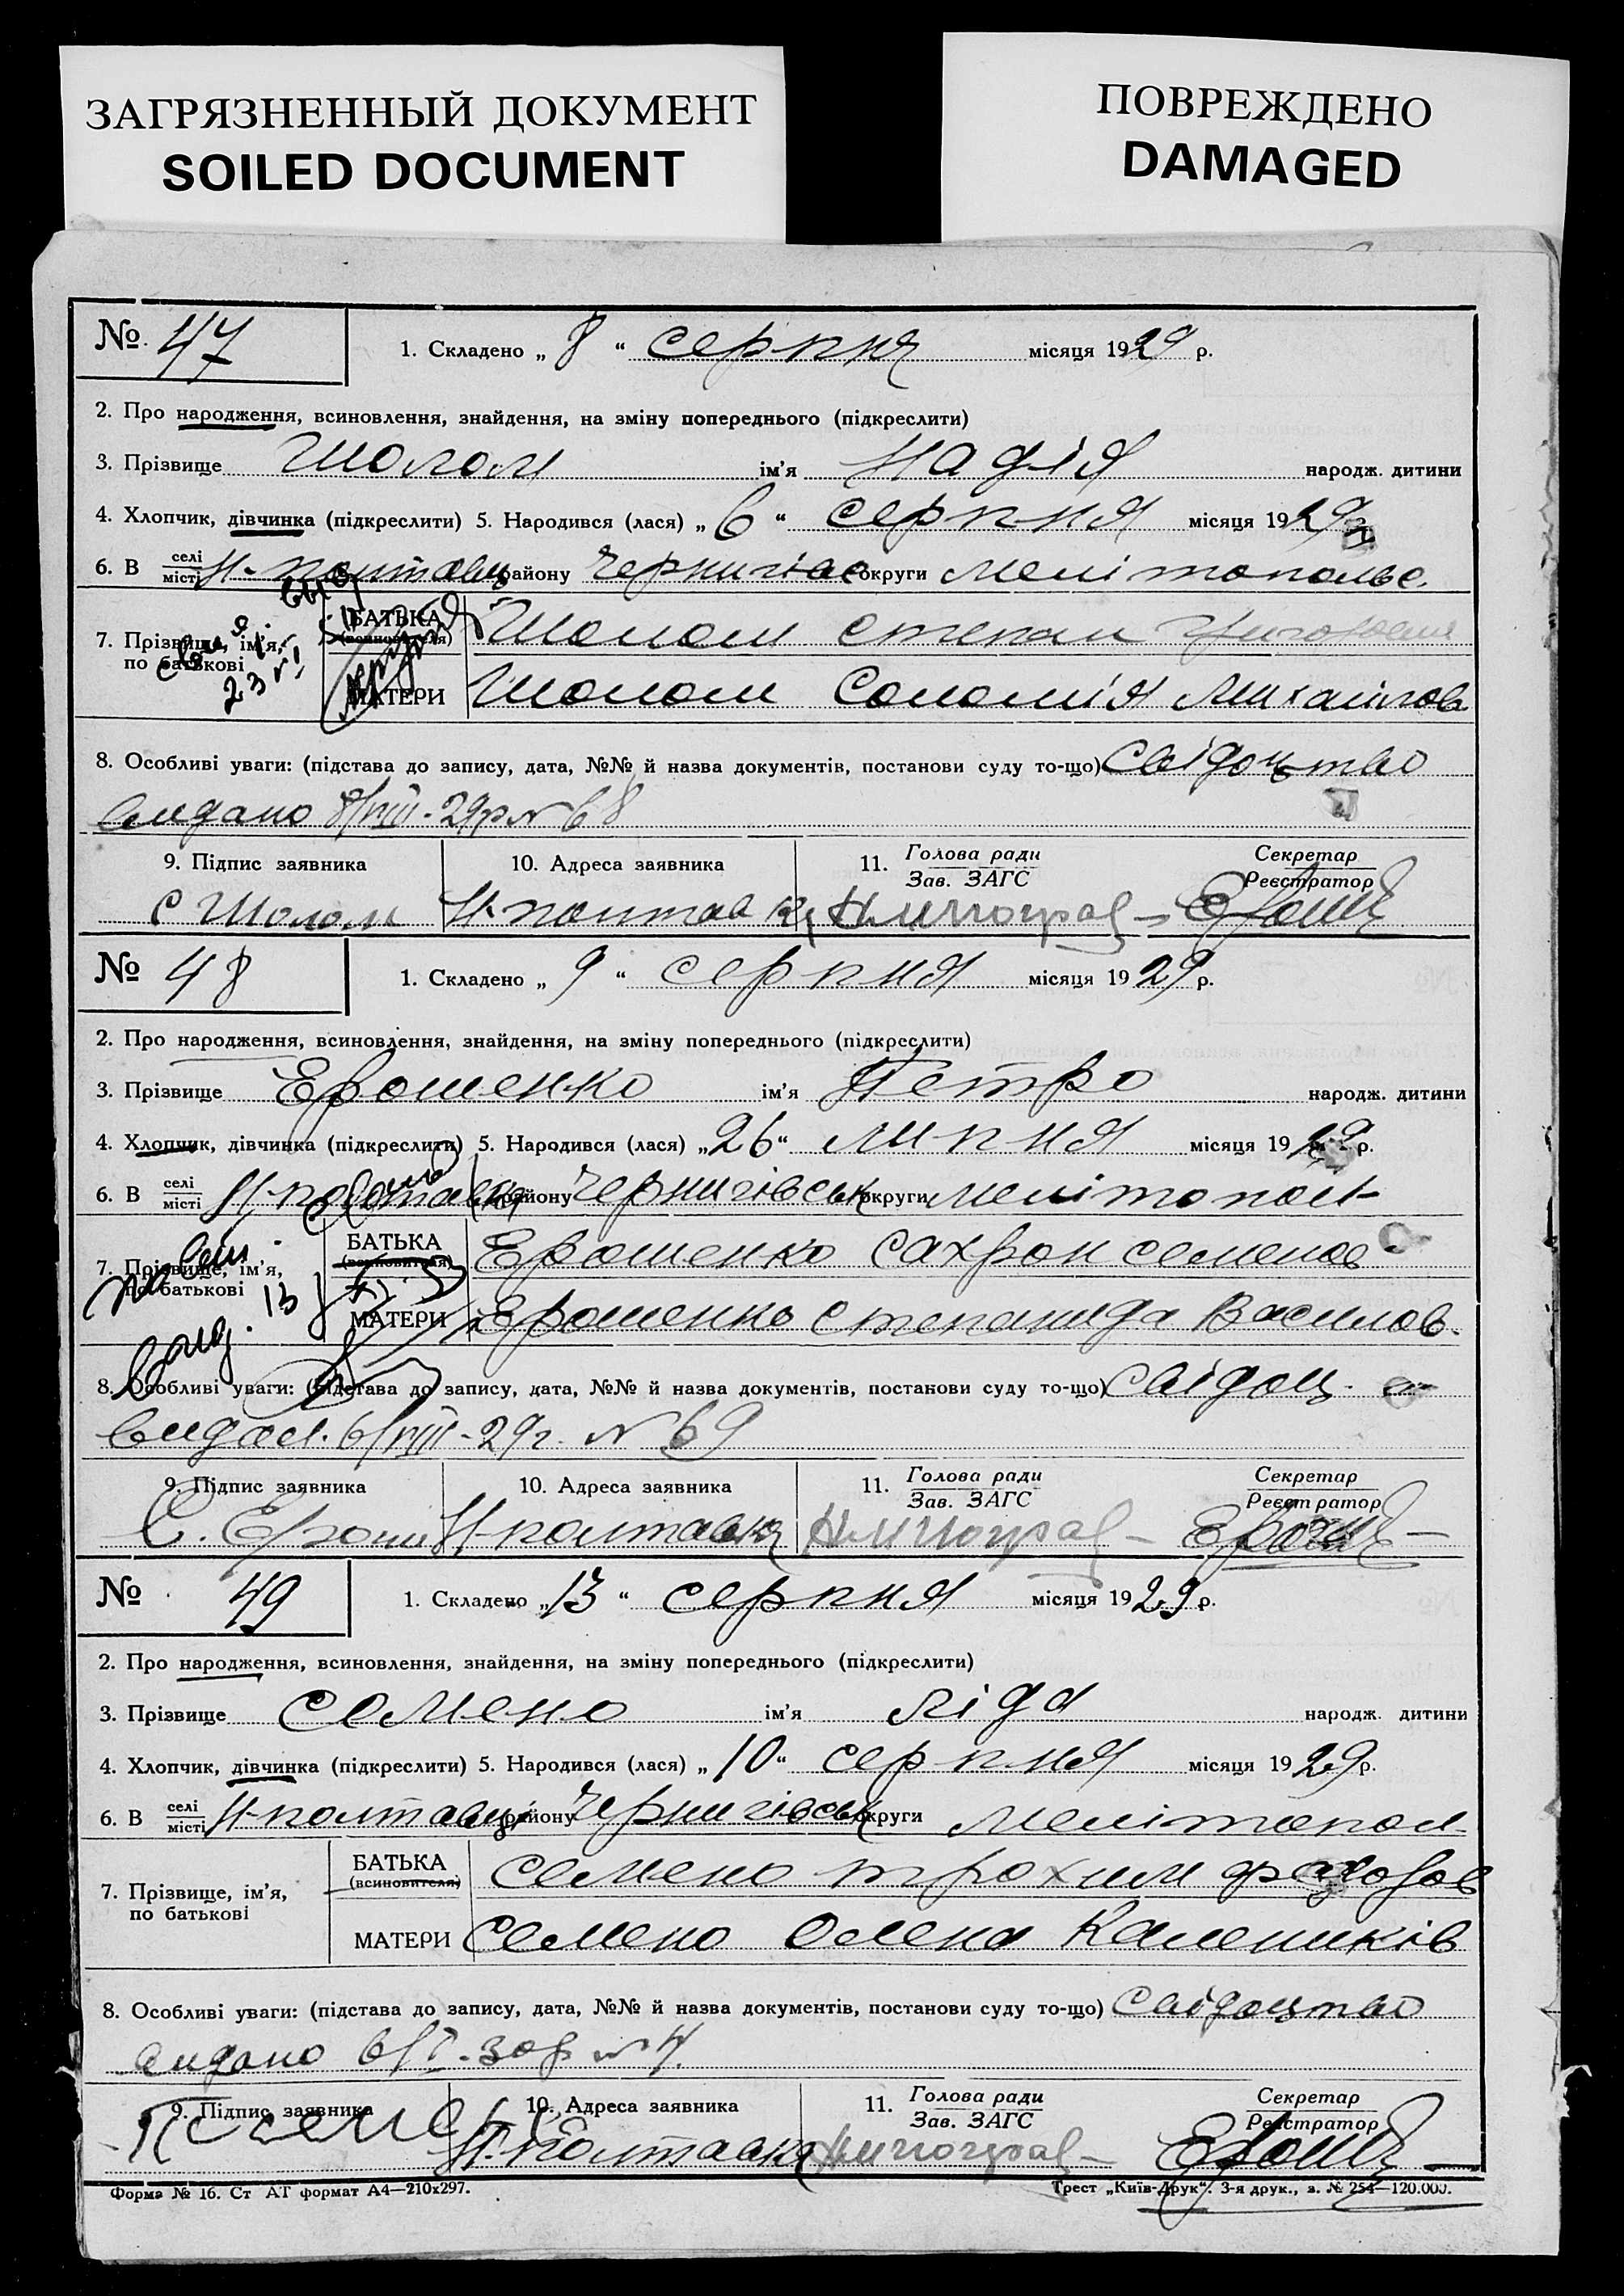 ЗАГРЯЗНЕННЫЙ ДОКУМЕНТ
SOILED DOCUMENT
ПОВРЕЖДЕНО
DAMAGED
№ 47
1. Складено „ 8 “ серпня місяця 1929 р.
2. Про народження, всиновлення, знайдення, на зміну попереднього (підкреслити)
3. Прізвище Шолом ім’я Надія народж. дитини
4. Хлопчик, дівчинка (підкреслити) 5. Народився (лася) „ 6 “ серпня місяця 1929
6. В селі місті Н-полтавц району Чернигівс округи Мелітопольс.
7. Прізвище, ім’я, по батькові
БАТЬКА (всиновителя) Шолом Степан
МАТЕРИ Шолом Соломія Михайлов
8. Особливі уваги: (підстава до запису, дата, №№ й назва документів, постанови суду то-що) Свідоцтво
видано 8/VIII-29р № 68
9. Підпис заявника 10. Адреса заявника 11. Голова ради Зав. ЗАГС Секретар Реєстратор
С Шолом Н-полтавка
№ 48
1. Складено „ 9 “ серпня місяця 1929 р.
2. Про народження, всиновлення, знайдення, на зміну попереднього (підкреслити)
3. Прізвище Ерошенко ім’я Петро народж. дитини
4. Хлопчик, дівчинка (підкреслити) 5. Народився (лася) „ 26 “ липня місяця 1929 р.
6. В селі місті Н-полтавка району Чернигівськ округи Мелітопол-
7. Прізвище, ім’я, по батькові
БАТЬКА (всиновителя) Ерошенко Сахрон Семенов
МАТЕРИ Ерошенко Степанида Василов.
8. Особливі уваги: (підстава до запису, дата, №№ й назва документів, постанови суду то-що) Свідоц.
видан. 6/VIII-29г. № 69
9. Підпис заявника 10. Адреса заявника 11. Голова ради Зав. ЗАГС Секретар Реєстратор
С. Ерош Н-полтавка
№ 49
1. Складено „ 13 “ серпня місяця 1929 р.
2. Про народження, всиновлення, знайдення, на зміну попереднього (підкреслити)
3. Прізвище Семено ім’я Ліда народж. дитини
4. Хлопчик, дівчинка (підкреслити) 5. Народився (лася) „ 10 “ серпня місяця 1929 р.
6. В селі місті Н-полтавці району Чернигівськ округи Мелітопол-
7. Прізвище, ім’я, по батькові
БАТЬКА (всиновителя) Семено Трохим
МАТЕРИ Семено Олена Калеників
8. Особливі уваги: (підстава до запису, дата, №№ й назва документів, постанови суду то-що) Свідоцтво
видано 6/I-30р № 4.
9. Підпис заявника 10. Адреса заявника 11. Голова ради Зав. ЗАГС Секретар Реєстратор
Н-Полтавка
Форма № 16. Ст АТ формат А4—210х297.
Трест „Київ-Друк“. 3-я друк., з. № 254—120.000.